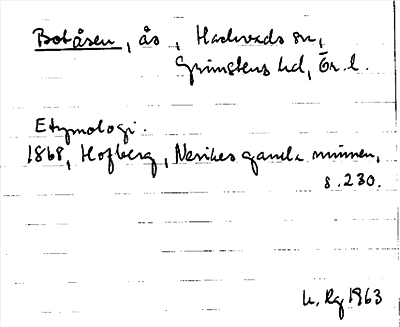 Botåsen, ås, Hardemo sn,
Grimstens hd, Ör. l.
Etymologi.
1868, Hofberg, Nerikes gamla minnen,
s. 230.
1963